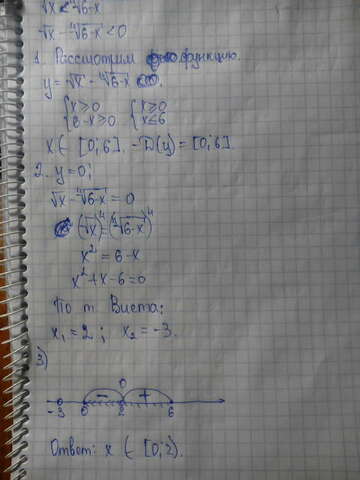 √x < ⁴√6-x
√x - ⁴√6-x < 0
1. Рассмотрим функцию.
y = √x - ⁴√6-x
{x ≥ 0 {x ≥ 0
{6-x ≥ 0 {x ≤ 6
x ∈ [0; 6]. - D(y) = [0; 6].
2. y = 0;
√x - ⁴√6-x = 0
(√x)⁴ = (⁴√6-x)⁴
x² = 6-x
x² + x - 6 = 0
По т. Виета:
x₁ = 2; x₂ = -3.
3)
0
- +
-3 0 2 6
Ответ: x ∈ [0; 2).